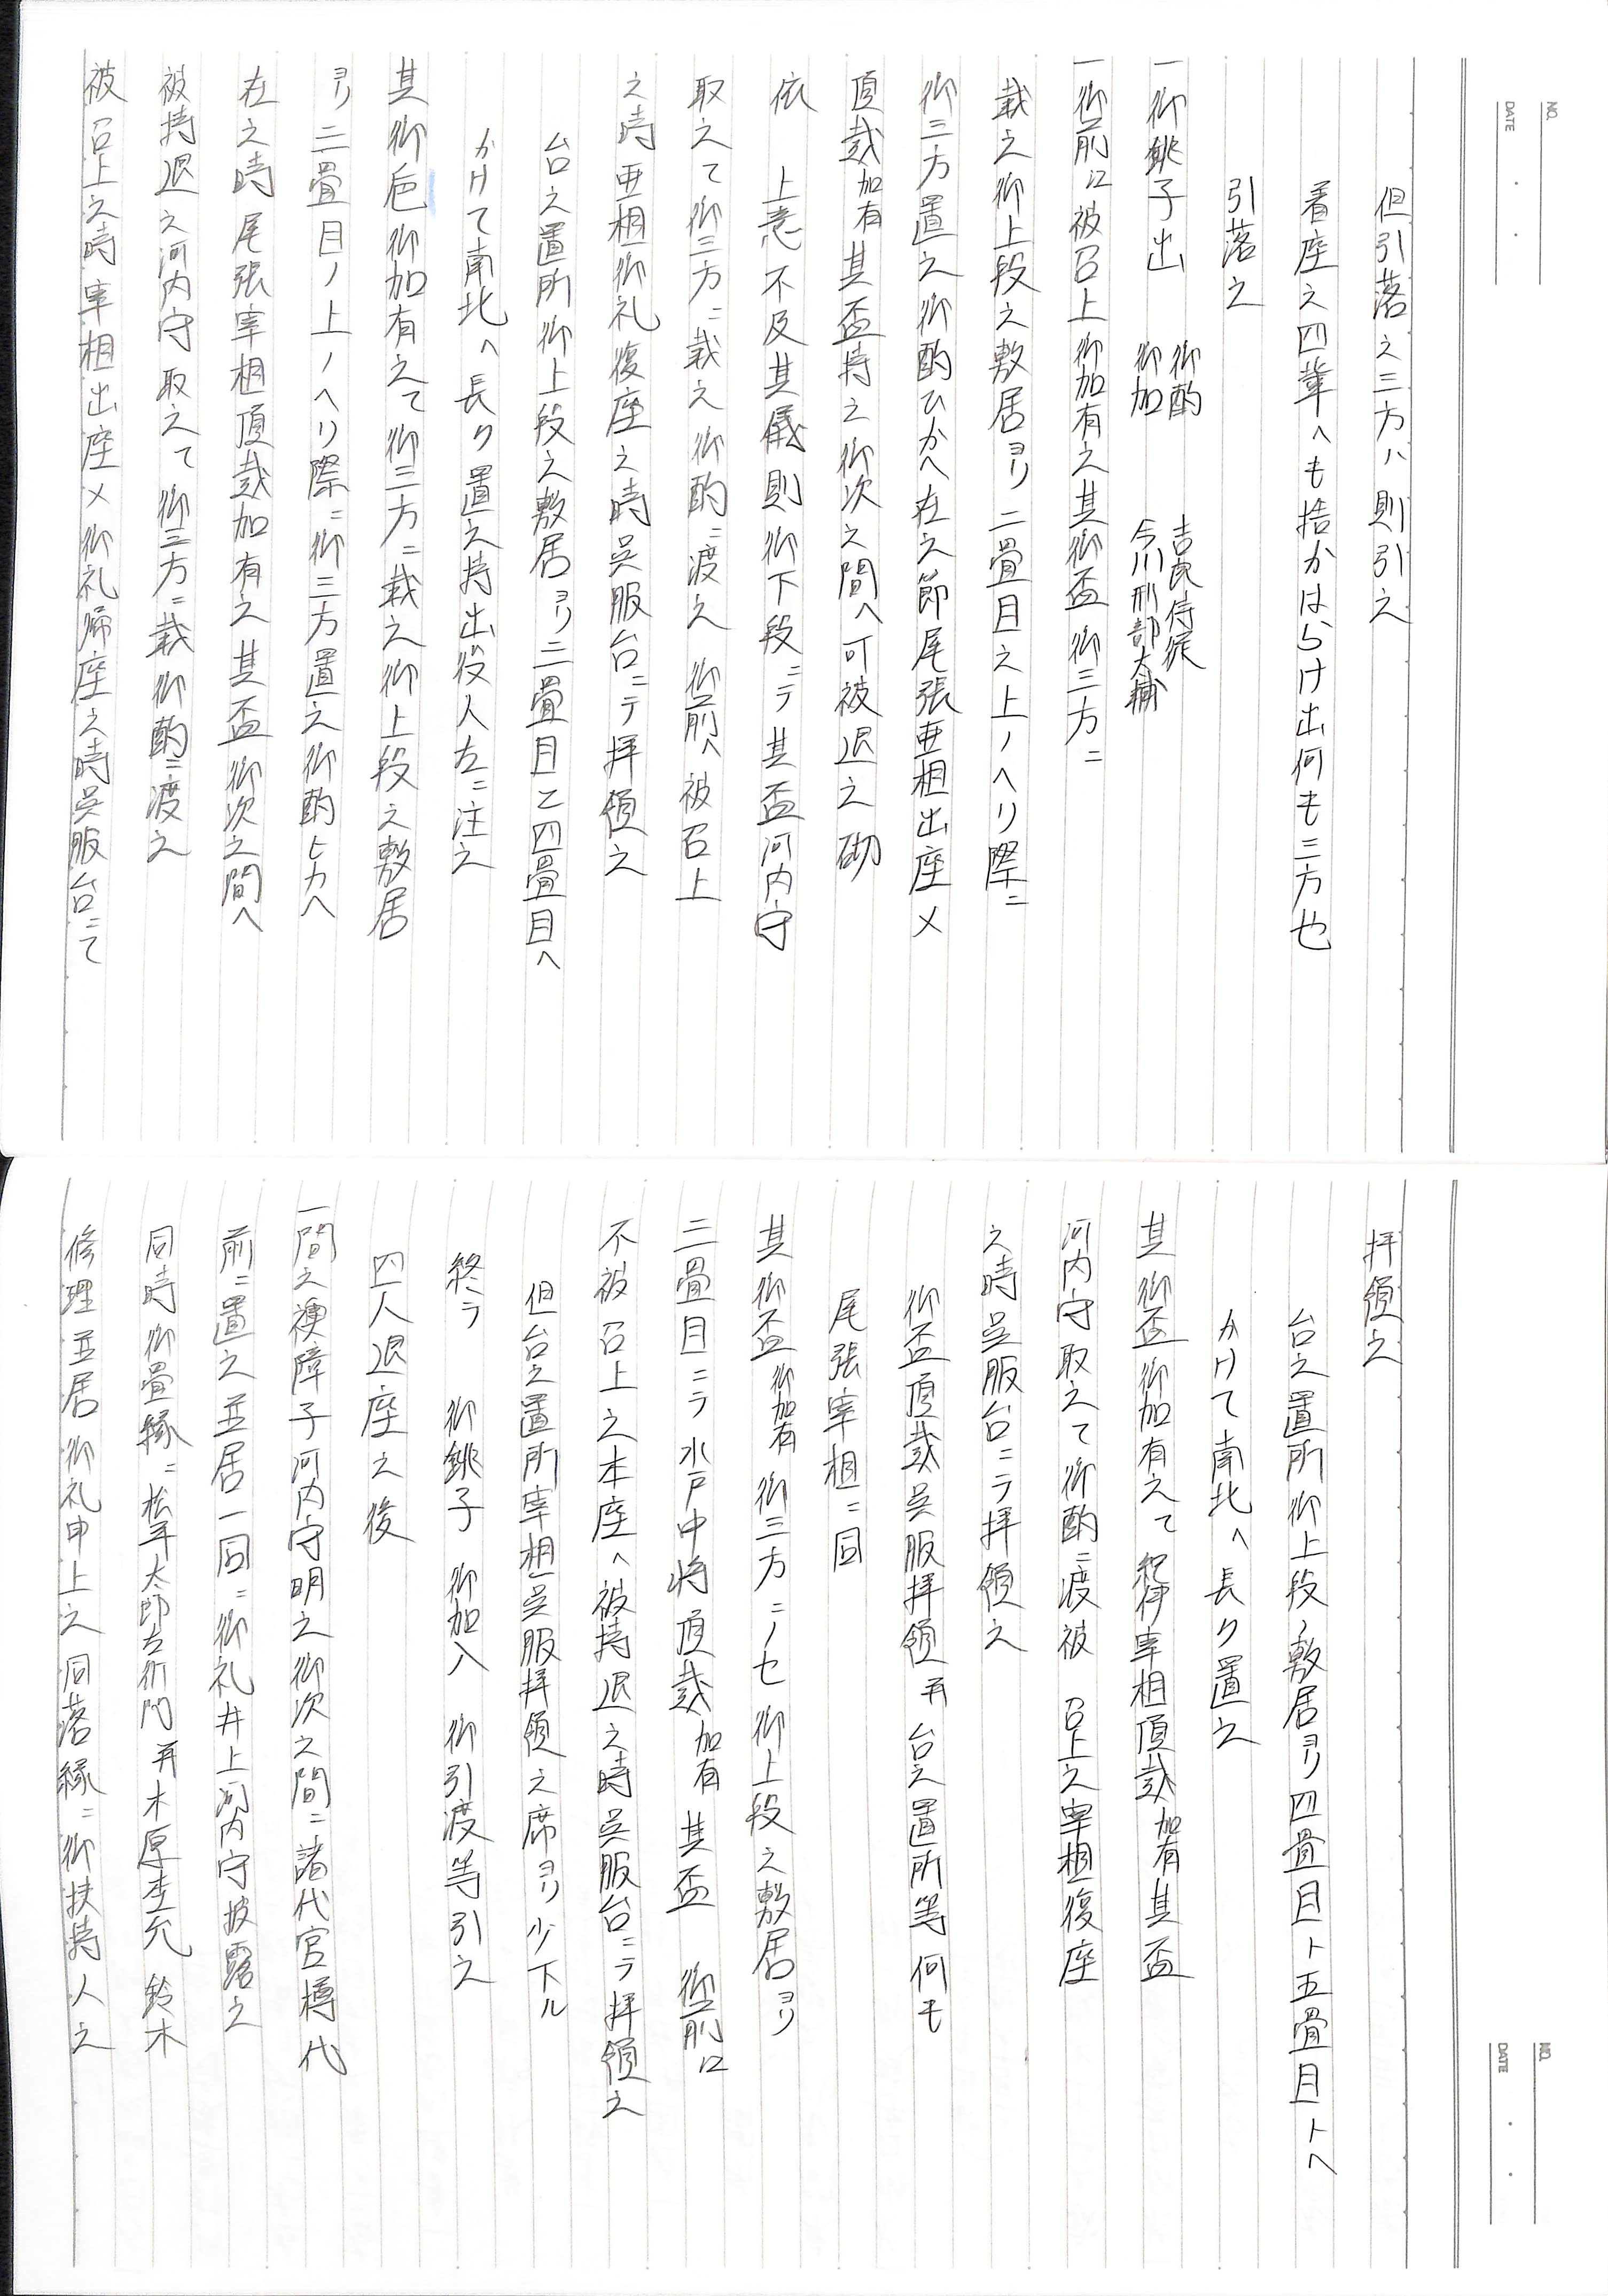 NO.
DATE
但引落之三方ハ則引之
着座之四輩へも捨かはらけ出何も三方也
引落之
一御銚子出 御酌 吉良侍従
御加 今川刑部大輔
一御前江被召上御加有之其御盃御三方ニ
載之御上段之敷居ヨリ二畳目之上ノヘリ際ニ
御三方置之御酌ひかへ在之節尾張亜相出座〆
頂戴加有其盃持之御次之間へ可被退之砌
依 上意不及其儀則御下段ニテ其盃河内守
取之て御三方ニ載之御酌ニ渡之 御前へ被召上
之時亜相御礼復座之時呉服台ニテ拝領之
台之置所御上段之敷居ヨリ三畳目と四畳目へ
かけて南北へ長ク置之持出役人左ニ注之
其御巵御加有之て御三方ニ載之御上段之敷居
ヨリ二畳目ノ上ノヘリ際ニ御三方置之御酌ヒカヘ
在之時尾張宰相頂戴加有之其盃御次之間へ
被持退之河内守取之て御三方ニ載御酌ニ渡之
被召上之時宰相出座〆御礼帰座之時呉服台ニて
NO.
DATE
拝領之
台之置所御上段ノ敷居ヨリ四畳目ト五畳目トヘ
かけて南北へ長ク置之
其御盃御加有之て紀伊宰相頂戴加有其盃
河内守取之て御酌ニ渡被 召上之宰相復座
之時呉服台ニテ拝領之
御盃頂戴呉服拝領再台之置所等何も
尾張宰相ニ同
其御盃御加有御三方ニノセ御上段之敷居ヨリ
二畳目ニテ水戸中将頂戴加有其盃 御前江
不被召上之本座へ被持退之時呉服台ニテ拝領之
但台之置所宰相呉服拝領之席ヨリ少下ル
終テ 御銚子御加入 御引渡等引之
四人退座之後
一間之襖障子河内守明之御次之間ニ諸代官樽代
前ニ置之並居一同ニ御礼井上河内守披露之
同時御畳縁ニ松平太郎左衛門再木原杢允鈴木
修理並居御礼申上之同落縁ニ御扶持人之